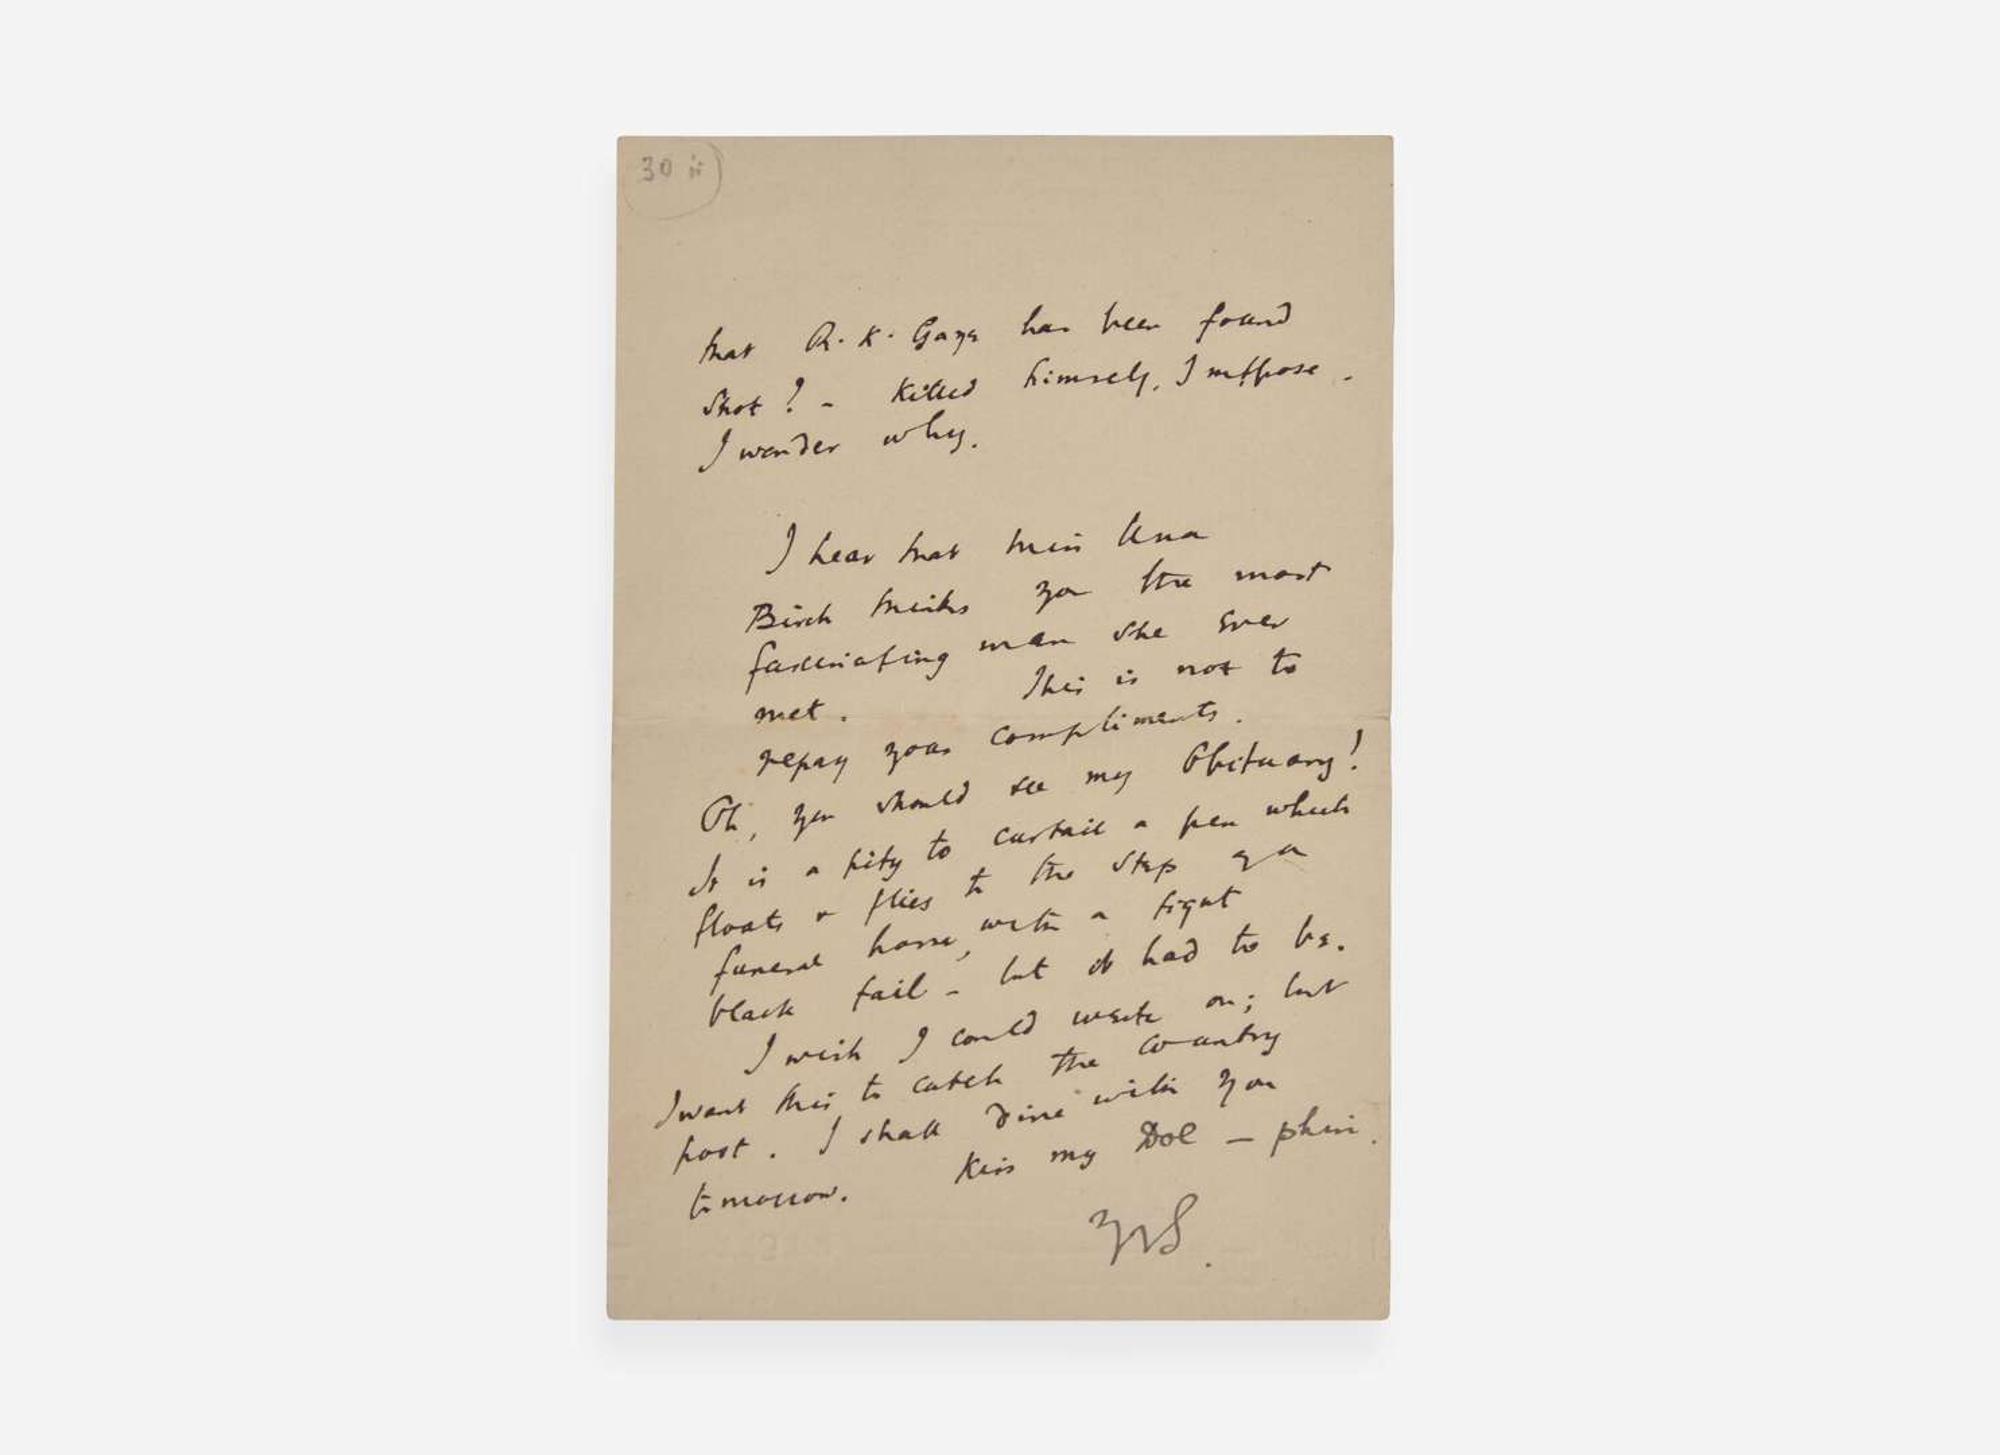 30 ii
that R. K. Gaye has been found
shot? - Killed himself, I suppose -
I wonder why.
I hear that Miss Una
Birch thinks you the most
fascinating man she ever
met. This is not to
repay your compliments.
Oh, you should see my Obituary!
It is a pity to curtail a pen which
floats & flies to the step of a
funeral horse, with a tight
black tail - but it had to be.
I wish I could write on; but
I want this to catch the country
post. I shall dine with you
tomorrow. Kiss my Dol - phin.
VS.